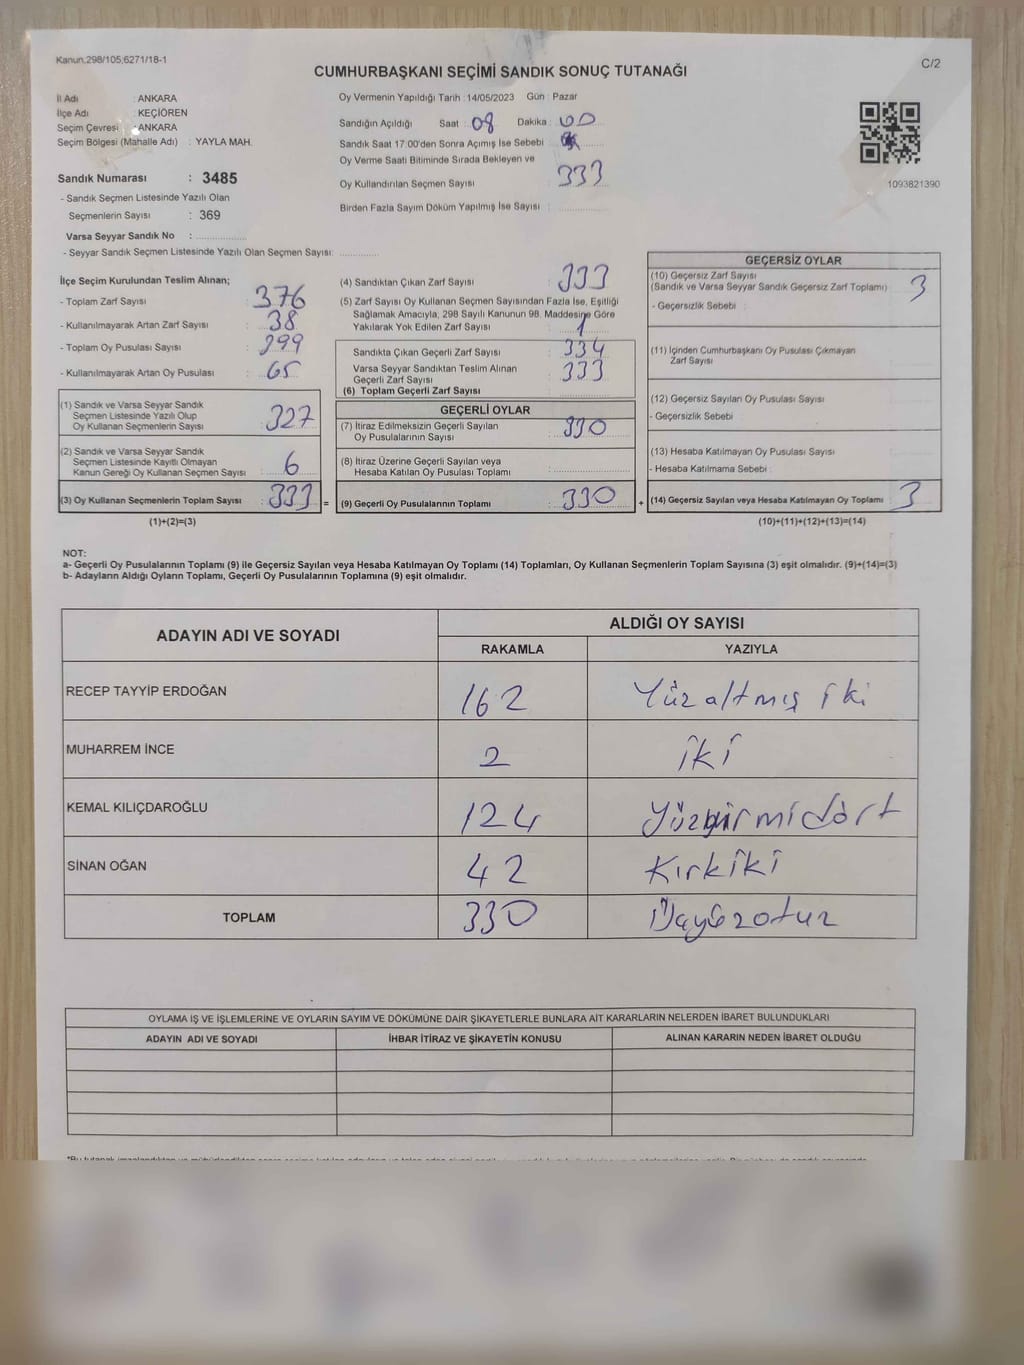 Kanun,298/105;6271/18-1
C/2
CUMHURBAŞKANI SEÇİMİ SANDIK SONUÇ TUTANAĞI
İl Adı : ANKARA
İlçe Adı : KEÇİÖREN
Seçim Çevresi : ANKARA
Seçim Bölgesi (Mahalle Adı) : YAYLA MAH.
Sandık Numarası : 3485
- Sandık Seçmen Listesinde Yazılı Olan
Seçmenlerin Sayısı : 369
Varsa Seyyar Sandık No :
- Seyyar Sandık Seçmen Listesinde Yazılı Olan Seçmen Sayısı:
Oy Vermenin Yapıldığı Tarih : 14/05/2023 Gün : Pazar
Sandığın Açıldığı Saat : 08 Dakika : 00
Sandık Saat 17:00'den Sonra Açımış İse Sebebi :
Oy Verme Saati Bitiminde Sırada Bekleyen ve
Oy Kullandırılan Seçmen Sayısı : 333
Birden Fazla Sayım Döküm Yapılmış İse Sayısı :
1093821390
İlçe Seçim Kurulundan Teslim Alınan;
- Toplam Zarf Sayısı : 376
- Kullanılmayarak Artan Zarf Sayısı : 38
- Toplam Oy Pusulası Sayısı : 399
- Kullanılmayarak Artan Oy Pusulası : 65
(1) Sandık ve Varsa Seyyar Sandık
Seçmen Listesinde Yazılı Olup
Oy Kullanan Seçmenlerin Sayısı : 327
(2) Sandık ve Varsa Seyyar Sandık
Seçmen Listesinde Kayıtlı Olmayan
Kanun Gereği Oy Kullanan Seçmen Sayısı : 6
(3) Oy Kullanan Seçmenlerin Toplam Sayısı : 333 =
(1)+(2)=(3)
(4) Sandıktan Çıkan Zarf Sayısı : 333
(5) Zarf Sayısı Oy Kullanan Seçmen Sayısından Fazla İse, Eşitliği
Sağlamak Amacıyla, 298 Sayılı Kanunun 98. Maddesine Göre
Yakılarak Yok Edilen Zarf Sayısı : 1
Sandıkta Çıkan Geçerli Zarf Sayısı : 334
Varsa Seyyar Sandıktan Teslim Alınan
Geçerli Zarf Sayısı : 333
(6) Toplam Geçerli Zarf Sayısı :
GEÇERLİ OYLAR
(7) İtiraz Edilmeksizin Geçerli Sayılan
Oy Pusulalarının Sayısı : 330
(8) İtiraz Üzerine Geçerli Sayılan veya
Hesaba Katılan Oy Pusulası Toplamı :
(9) Geçerli Oy Pusulalarının Toplamı : 330 +
GEÇERSİZ OYLAR
(10) Geçersiz Zarf Sayısı
(Sandık ve Varsa Seyyar Sandık Geçersiz Zarf Toplamı) : 3
- Geçersizlik Sebebi :
(11) İçinden Cumhurbaşkanı Oy Pusulası Çıkmayan
Zarf Sayısı :
(12) Geçersiz Sayılan Oy Pusulası Sayısı :
- Geçersizlik Sebebi :
(13) Hesaba Katılmayan Oy Pusulası Sayısı :
- Hesaba Katılmama Sebebi :
(14) Geçersiz Sayılan veya Hesaba Katılmayan Oy Toplamı : 3
(10)+(11)+(12)+(13)=(14)
NOT:
a- Geçerli Oy Pusulalarının Toplamı (9) ile Geçersiz Sayılan veya Hesaba Katılmayan Oy Toplamı (14) Toplamları, Oy Kullanan Seçmenlerin Toplam Sayısına (3) eşit olmalıdır. (9)+(14)=(3)
b- Adayların Aldığı Oyların Toplamı, Geçerli Oy Pusulalarının Toplamına (9) eşit olmalıdır.
ADAYIN ADI VE SOYADI ALDIĞI OY SAYISI
RAKAMLA YAZIYLA
RECEP TAYYİP ERDOĞAN 162 Yüz altmış iki
MUHARREM İNCE 2 iki
KEMAL KILIÇDAROĞLU 124 Yüzyirmidört
SİNAN OĞAN 42 Kırkiki
TOPLAM 330 Üçyüzotuz
OYLAMA İŞ VE İŞLEMLERİNE VE OYLARIN SAYIM VE DÖKÜMÜNE DAİR ŞİKAYETLERLE BUNLARA AİT KARARLARIN NELERDEN İBARET BULUNDUKLARI
ADAYIN ADI VE SOYADI İHBAR İTİRAZ VE ŞİKAYETİN KONUSU ALINAN KARARIN NEDEN İBARET OLDUĞU